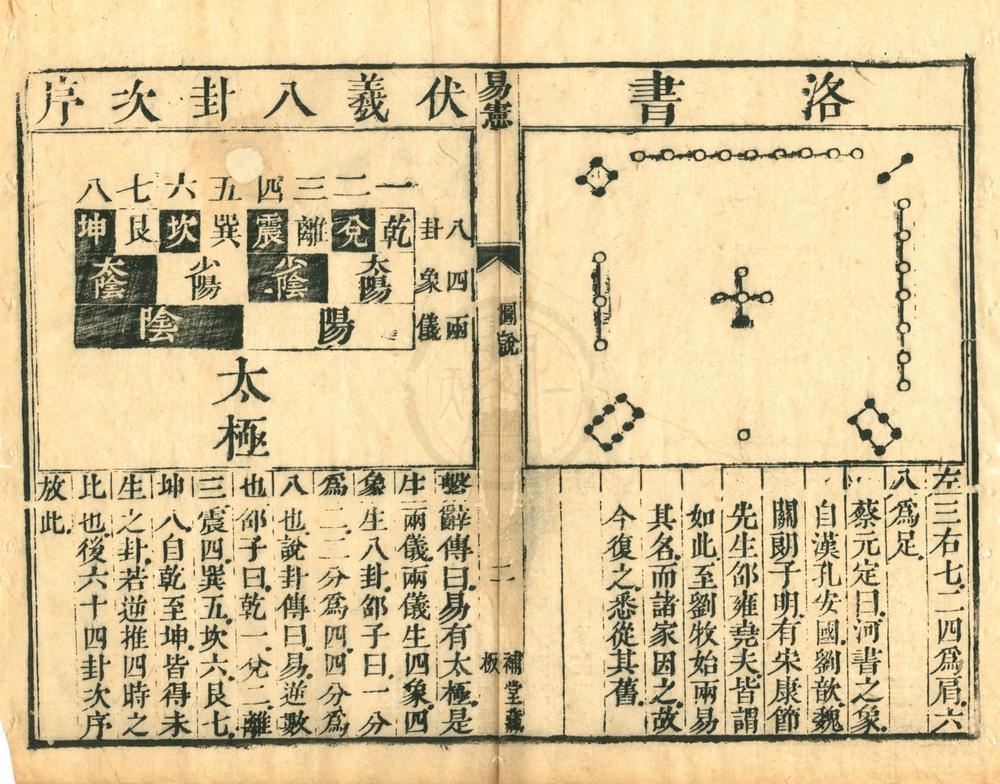 洛書
左三右七二四爲肩六
八爲足
蔡元定曰河書之象
自漢孔安國劉歆魏
關朗子明有宋康節
先生邵雍堯夫皆謂
如此至劉牧始兩易
其名而諸家因之故
今復之悉從其舊
易憲
圖說
二
補堂藏
板
伏羲八卦次序
一二三四五六七八
八卦
乾兌離震巽坎艮坤
四象
太陽少陰少陽太陰
兩儀
陽陰
太極
繫辭傳曰易有太極是
生兩儀兩儀生四象四
象生八卦邵子曰一分
爲二二分爲四四分爲
八也說卦傳曰易逆數
也邵子曰乾一兌二離
三震四巽五坎六艮七
坤八自乾至坤皆得未
生之卦若逆推四時之
比也後六十四卦次序
放此